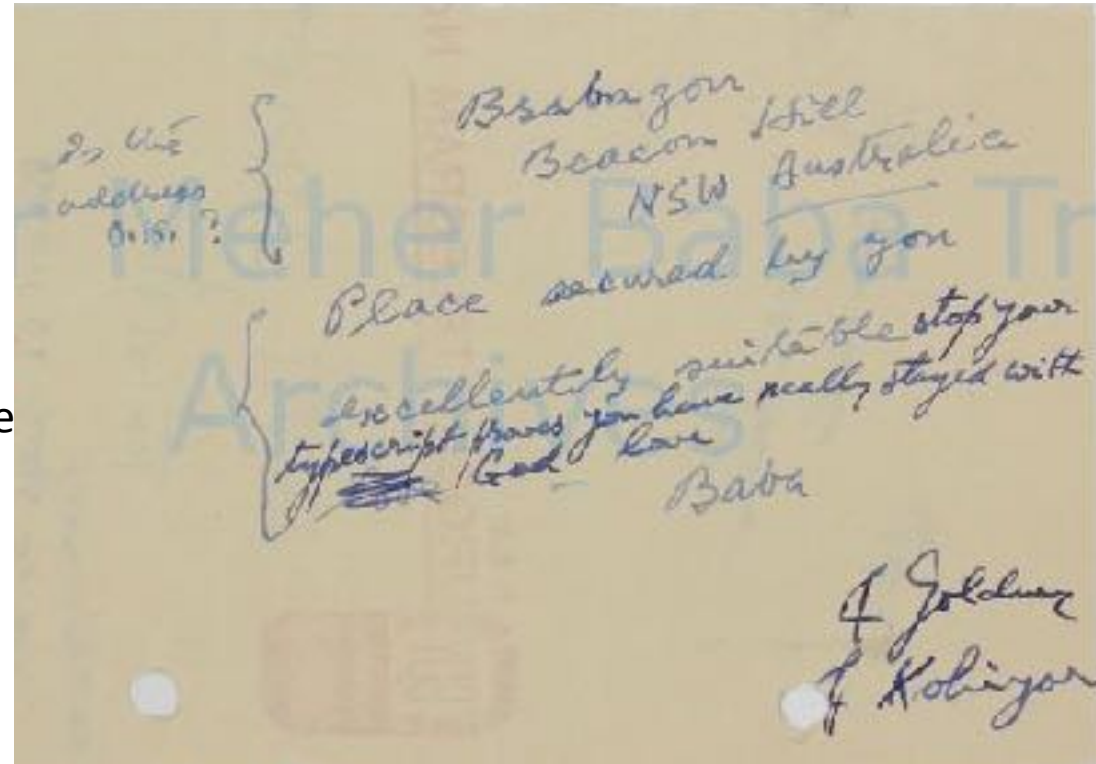 Is this
address
O.K.?
Brabazon
Beacon Hill
NSW Australia
Place secured by you
excellently suitable stop your
typescript proves you have really stayed with
God love
Baba
F Goldney
F Kohiyar
e
Meher Baba Tr
Archives